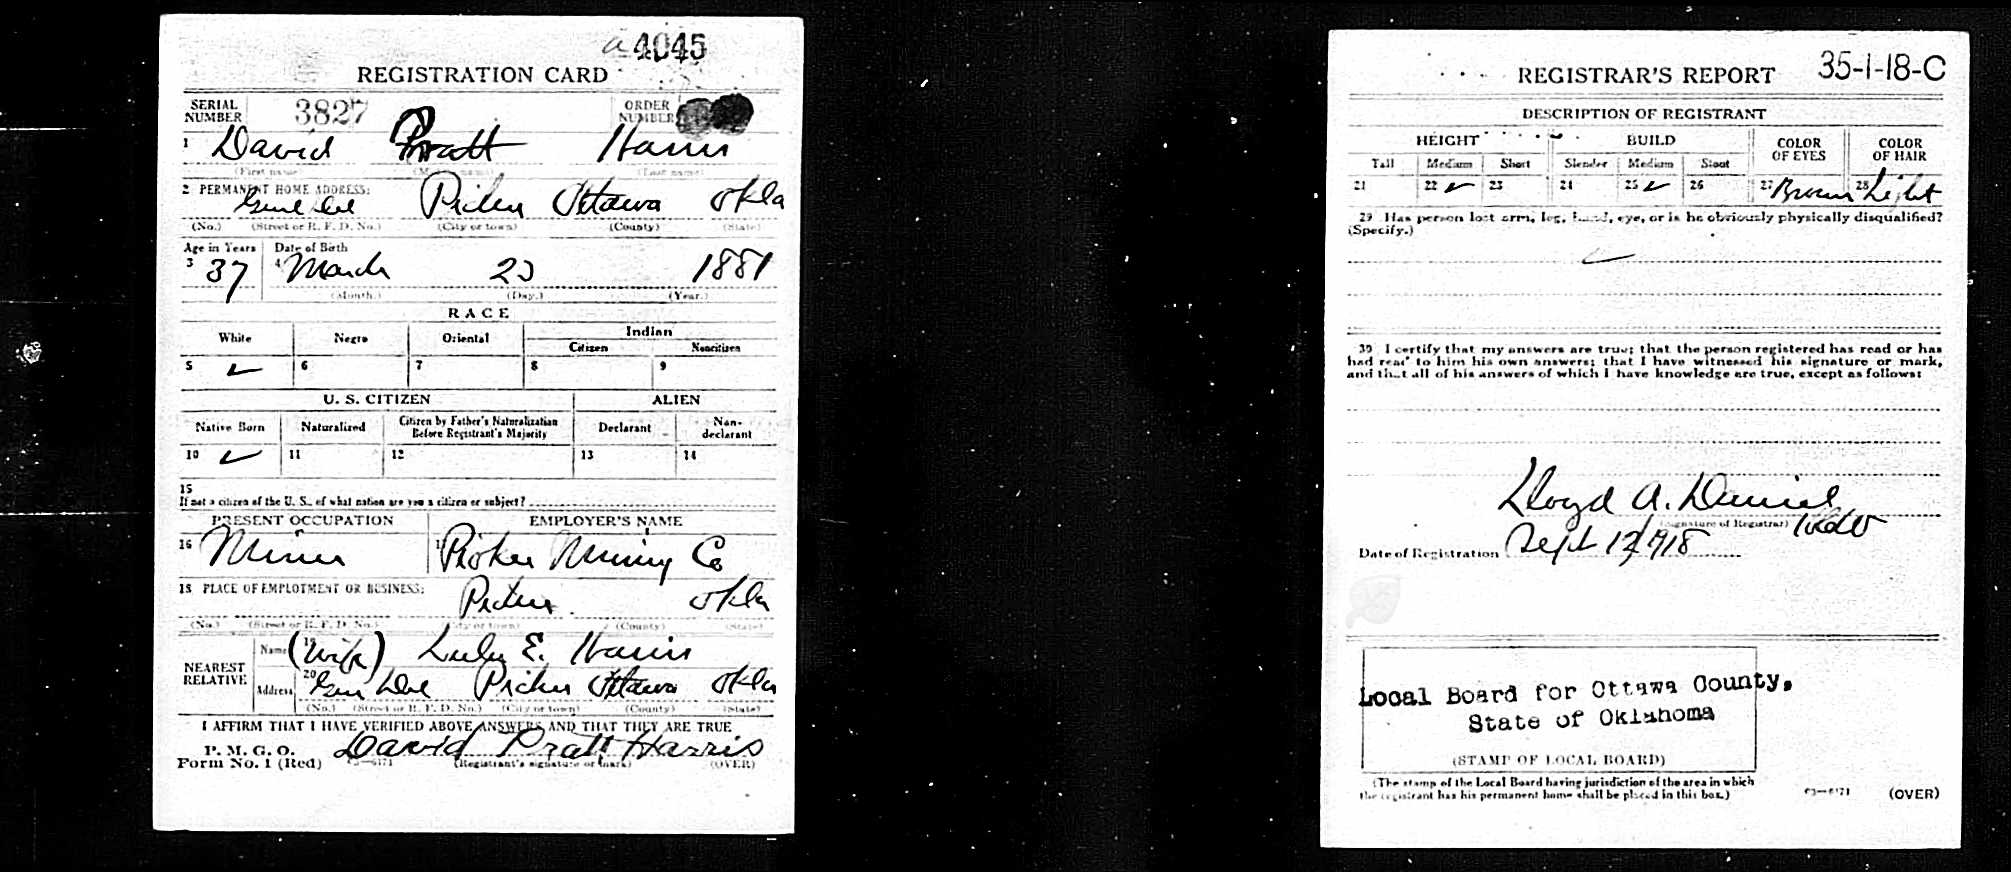 a 4045
REGISTRATION CARD
SERIAL NUMBER 3827 ORDER NUMBER
1 David Pratt Harris
(First name) (Middle name) (Last name)
2 PERMANENT HOME ADDRESS:
Gen Del Picher Ottawa Okla
(No.) (Street or R. F. D. No.) (City or town) (County) (State)
Age in Years Date of Birth
3 37 4 March 23 1881
(Month.) (Day.) (Year.)
RACE
White Negro Oriental Indian
Citizen Noncitizen
5 ✓ 6 7 8 9
U. S. CITIZEN ALIEN
Native Born Naturalized Citizen by Father's Naturalization Before Registrant's Majority Declarant Non-declarant
10 ✓ 11 12 13 14
15
If not a citizen of the U. S., of what nation are you a citizen or subject?
PRESENT OCCUPATION EMPLOYER'S NAME
16 Miner Mining Co
18 PLACE OF EMPLOYMENT OR BUSINESS:
Picher Okla
(No.) (Street or R. F. D. No.) (City or town) (County) (State)
NEAREST RELATIVE
Name 19 (Wife) Lulu E. Harris
Address 20 Gen Del Picher Ottawa Okla
(No.) (Street or R. F. D. No.) (City or town) (County) (State)
I AFFIRM THAT I HAVE VERIFIED ABOVE ANSWERS AND THAT THEY ARE TRUE
P. M. G. O.
Form No. 1 (Red) 03—6171 David Pratt Harris
(Registrant's signature or mark) (OVER)
REGISTRAR'S REPORT 35-1-18-C
DESCRIPTION OF REGISTRANT
HEIGHT BUILD COLOR OF EYES COLOR OF HAIR
Tall Medium Short Slender Medium Stout
21 22 ✓ 23 24 25 ✓ 26 27 Brown 28 Light
29 Has person lost arm, leg, hand, eye, or is he obviously physically disqualified?
(Specify.)
30 I certify that my answers are true; that the person registered has read or has
had read to him his own answers; that I have witnessed his signature or mark,
and that all of his answers of which I have knowledge are true, except as follows:
Lloyd A. Daniel
(Signature of Registrar)
Date of Registration Sept 12/1918
Local Board for Ottawa County,
State of Oklahoma
(STAMP OF LOCAL BOARD)
(The stamp of the Local Board having jurisdiction of the area in which
the registrant has his permanent home shall be placed in this box.)
03—6171 (OVER)